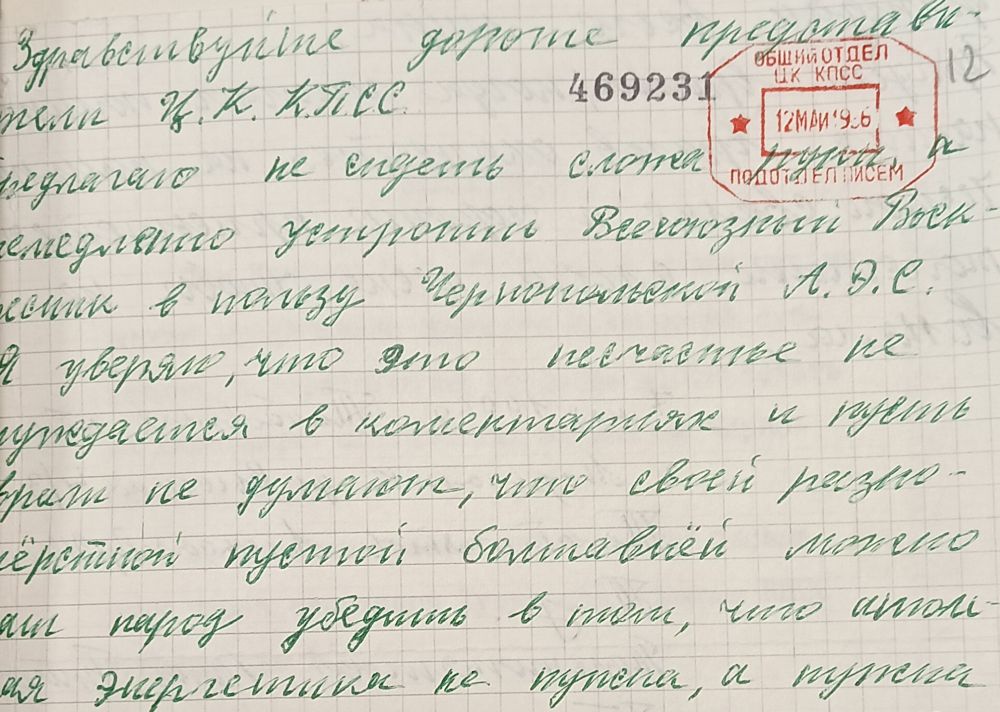 Здравствуйте дорогие представи-
тели Ц.К. К.П.С.С.
469231
ОБЩИЙ ОТДЕЛ
ЦК КПСС
12 МАЙ 1986
ПОДОТДЕЛ ПИСЕМ
12
редлагаю не сидеть сложа руки, а
немедленно устроить Всесоюзный Воск-
ресник в пользу Чернопольской А.Э.С.
Я уверяю, что это несчастье не
нуждается в коментариях и пусть
враги не думают, что своей разно-
шёрстной пустой болтавнёй можно
наш народ убедить в том, что атом-
ная энергетика не нужна, а нужна